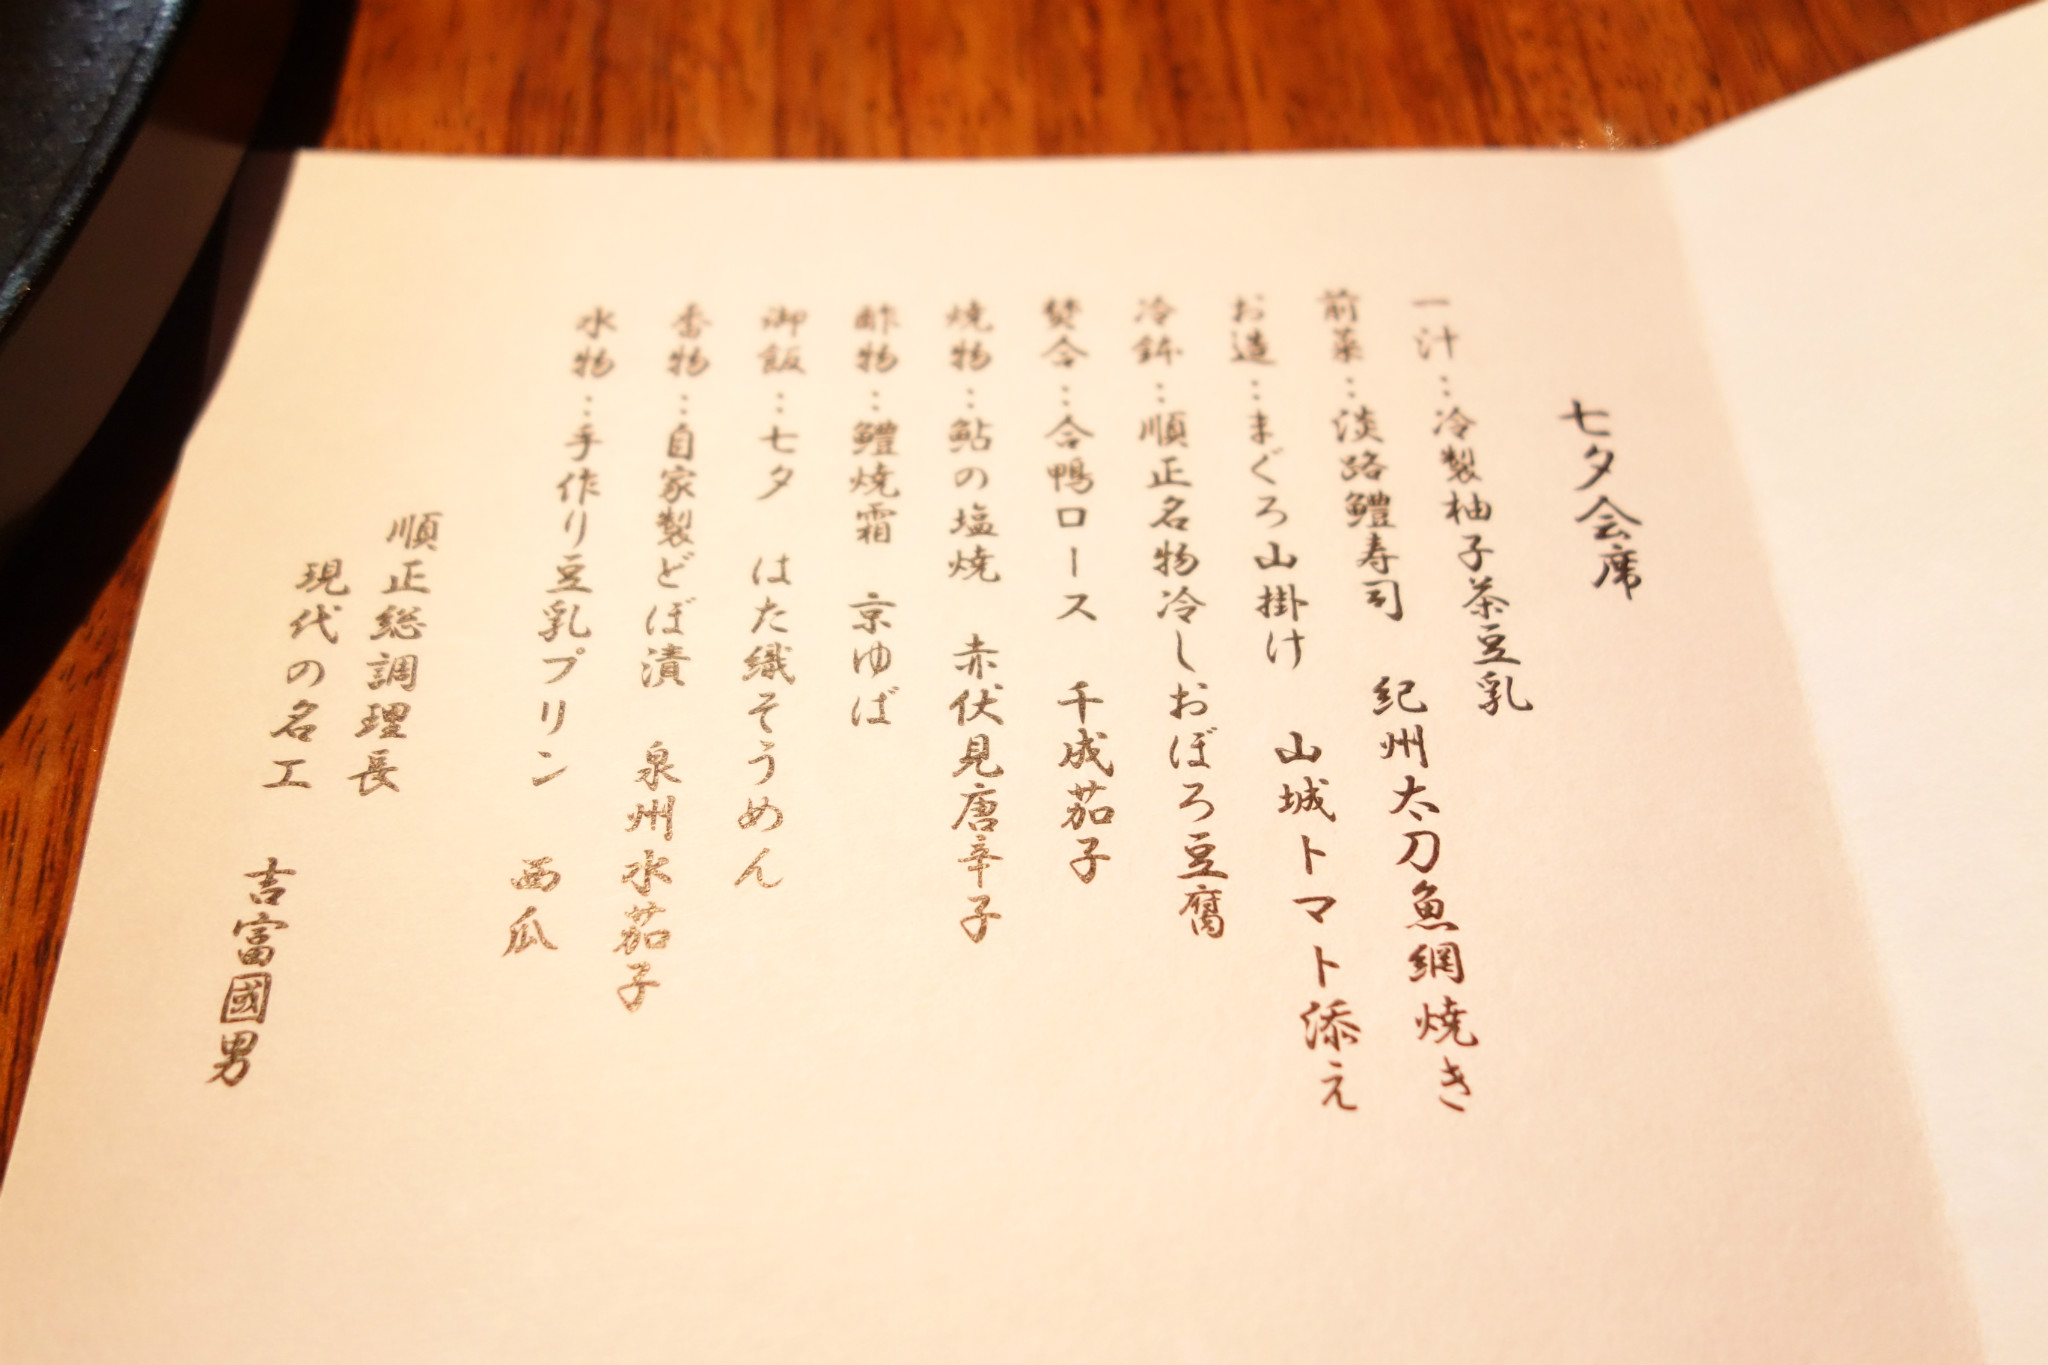 七夕会席
一汁…冷製柚子茶豆乳
前菜…淡路鱧寿司　紀州太刀魚網焼き
お造…まぐろ山掛け　山城トマト添え
冷鉢…順正名物冷しおぼろ豆腐
焚合…合鴨ロース　千成茄子
焼物…鮎の塩焼　赤伏見唐辛子
酢物…鱧焼霜　京ゆば
御飯…七夕　はた織そうめん
香物…自家製どぼ漬　泉州水茄子
水物…手作り豆乳プリン　西瓜
順正総調理長
現代の名工　吉富國男